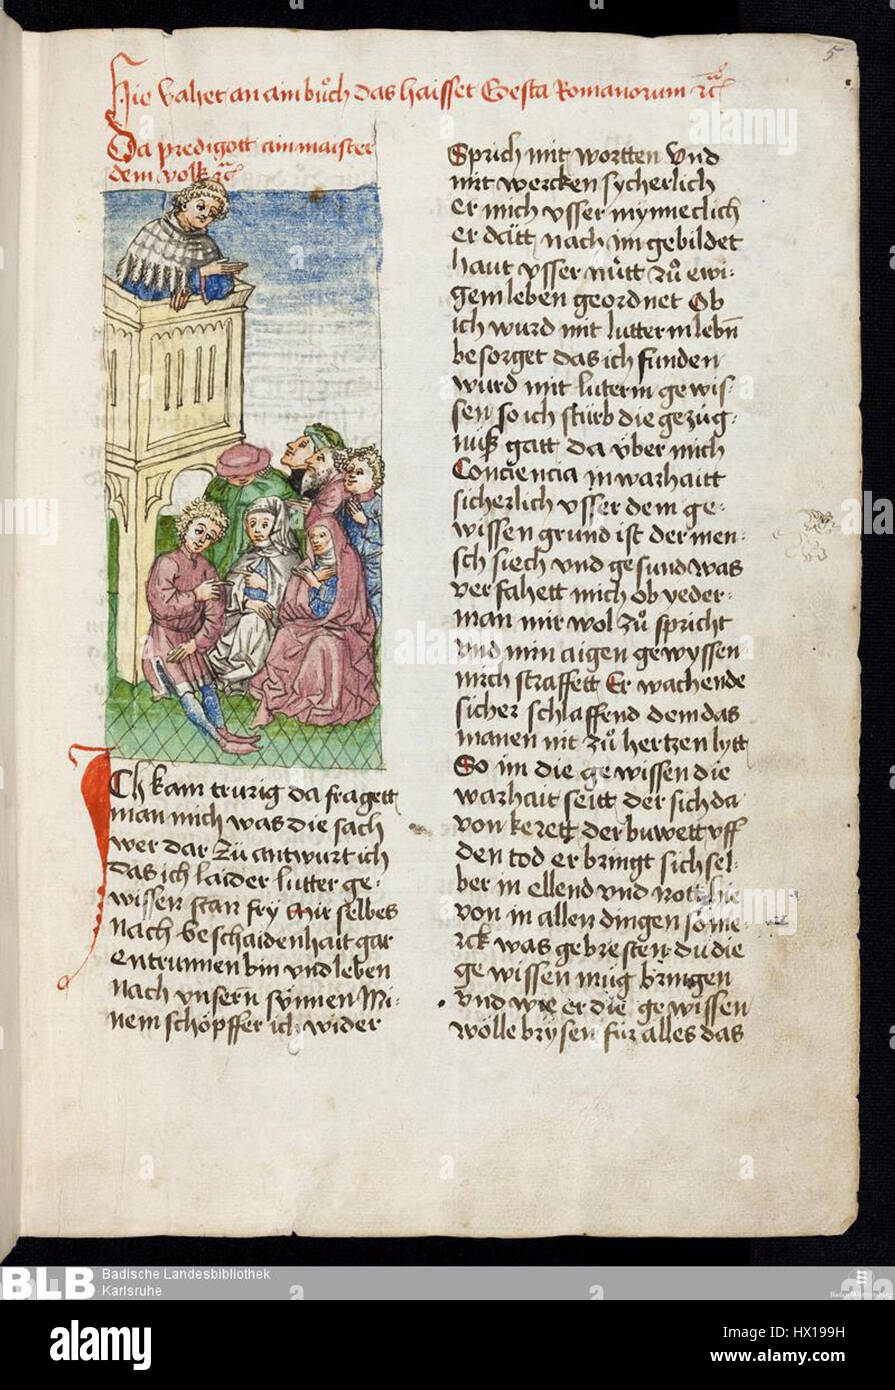 5
Hie vahet an ain bůch das haisset Gesta Romanorum
Da predigott ain maister
dem volk
ICh kam trurig da fragett
man mich was die sach
wer dar zů antwurt ich
das ich laider lutter ge-
wissen stan fry mir selbes
nach beschaidenhait gar
entrunnen bin vnd leben
nach vnsern synnen Mi-
nem schöpffer ich wider
Sprich mit wortten vnd
mit wercken sycherlich
er mich vsser mynneclich
er dätt nach im gebildet
haut vsser nütt zů ewi-
gem leben geordnet Ob
ich wurd mit lutterm lebn
besorget das ich funden
wurd mit luterm gewis-
sen so ich stürb die gezüg-
nuß gatt da über mich
Conciencia in warhaitt
sicherlich vsser dem ge-
wissen grund ist der men-
sch siech vnd gesund was
verfahett mich ob yeder-
man mir wol zů spricht
vnd min aigen gewyssen
mich straffett Er wachende
sicher schlaffend dem das
manen nit zů hertzen lytt
So im die gewissen die
warhait seitt der sich da
von kerett der buwett vff
den tod er bringt sich sel-
ber in ellend vnd nott hie
von in allen dingen so me-
rck was gebresten du die
gewissen müg bringen
vnd wie er die gewissen
wölle brysen für alles das
BLB Badische Landesbibliothek
Karlsruhe
Baden-Württemberg
alamy
Image ID: HX199H
www.alamy.com